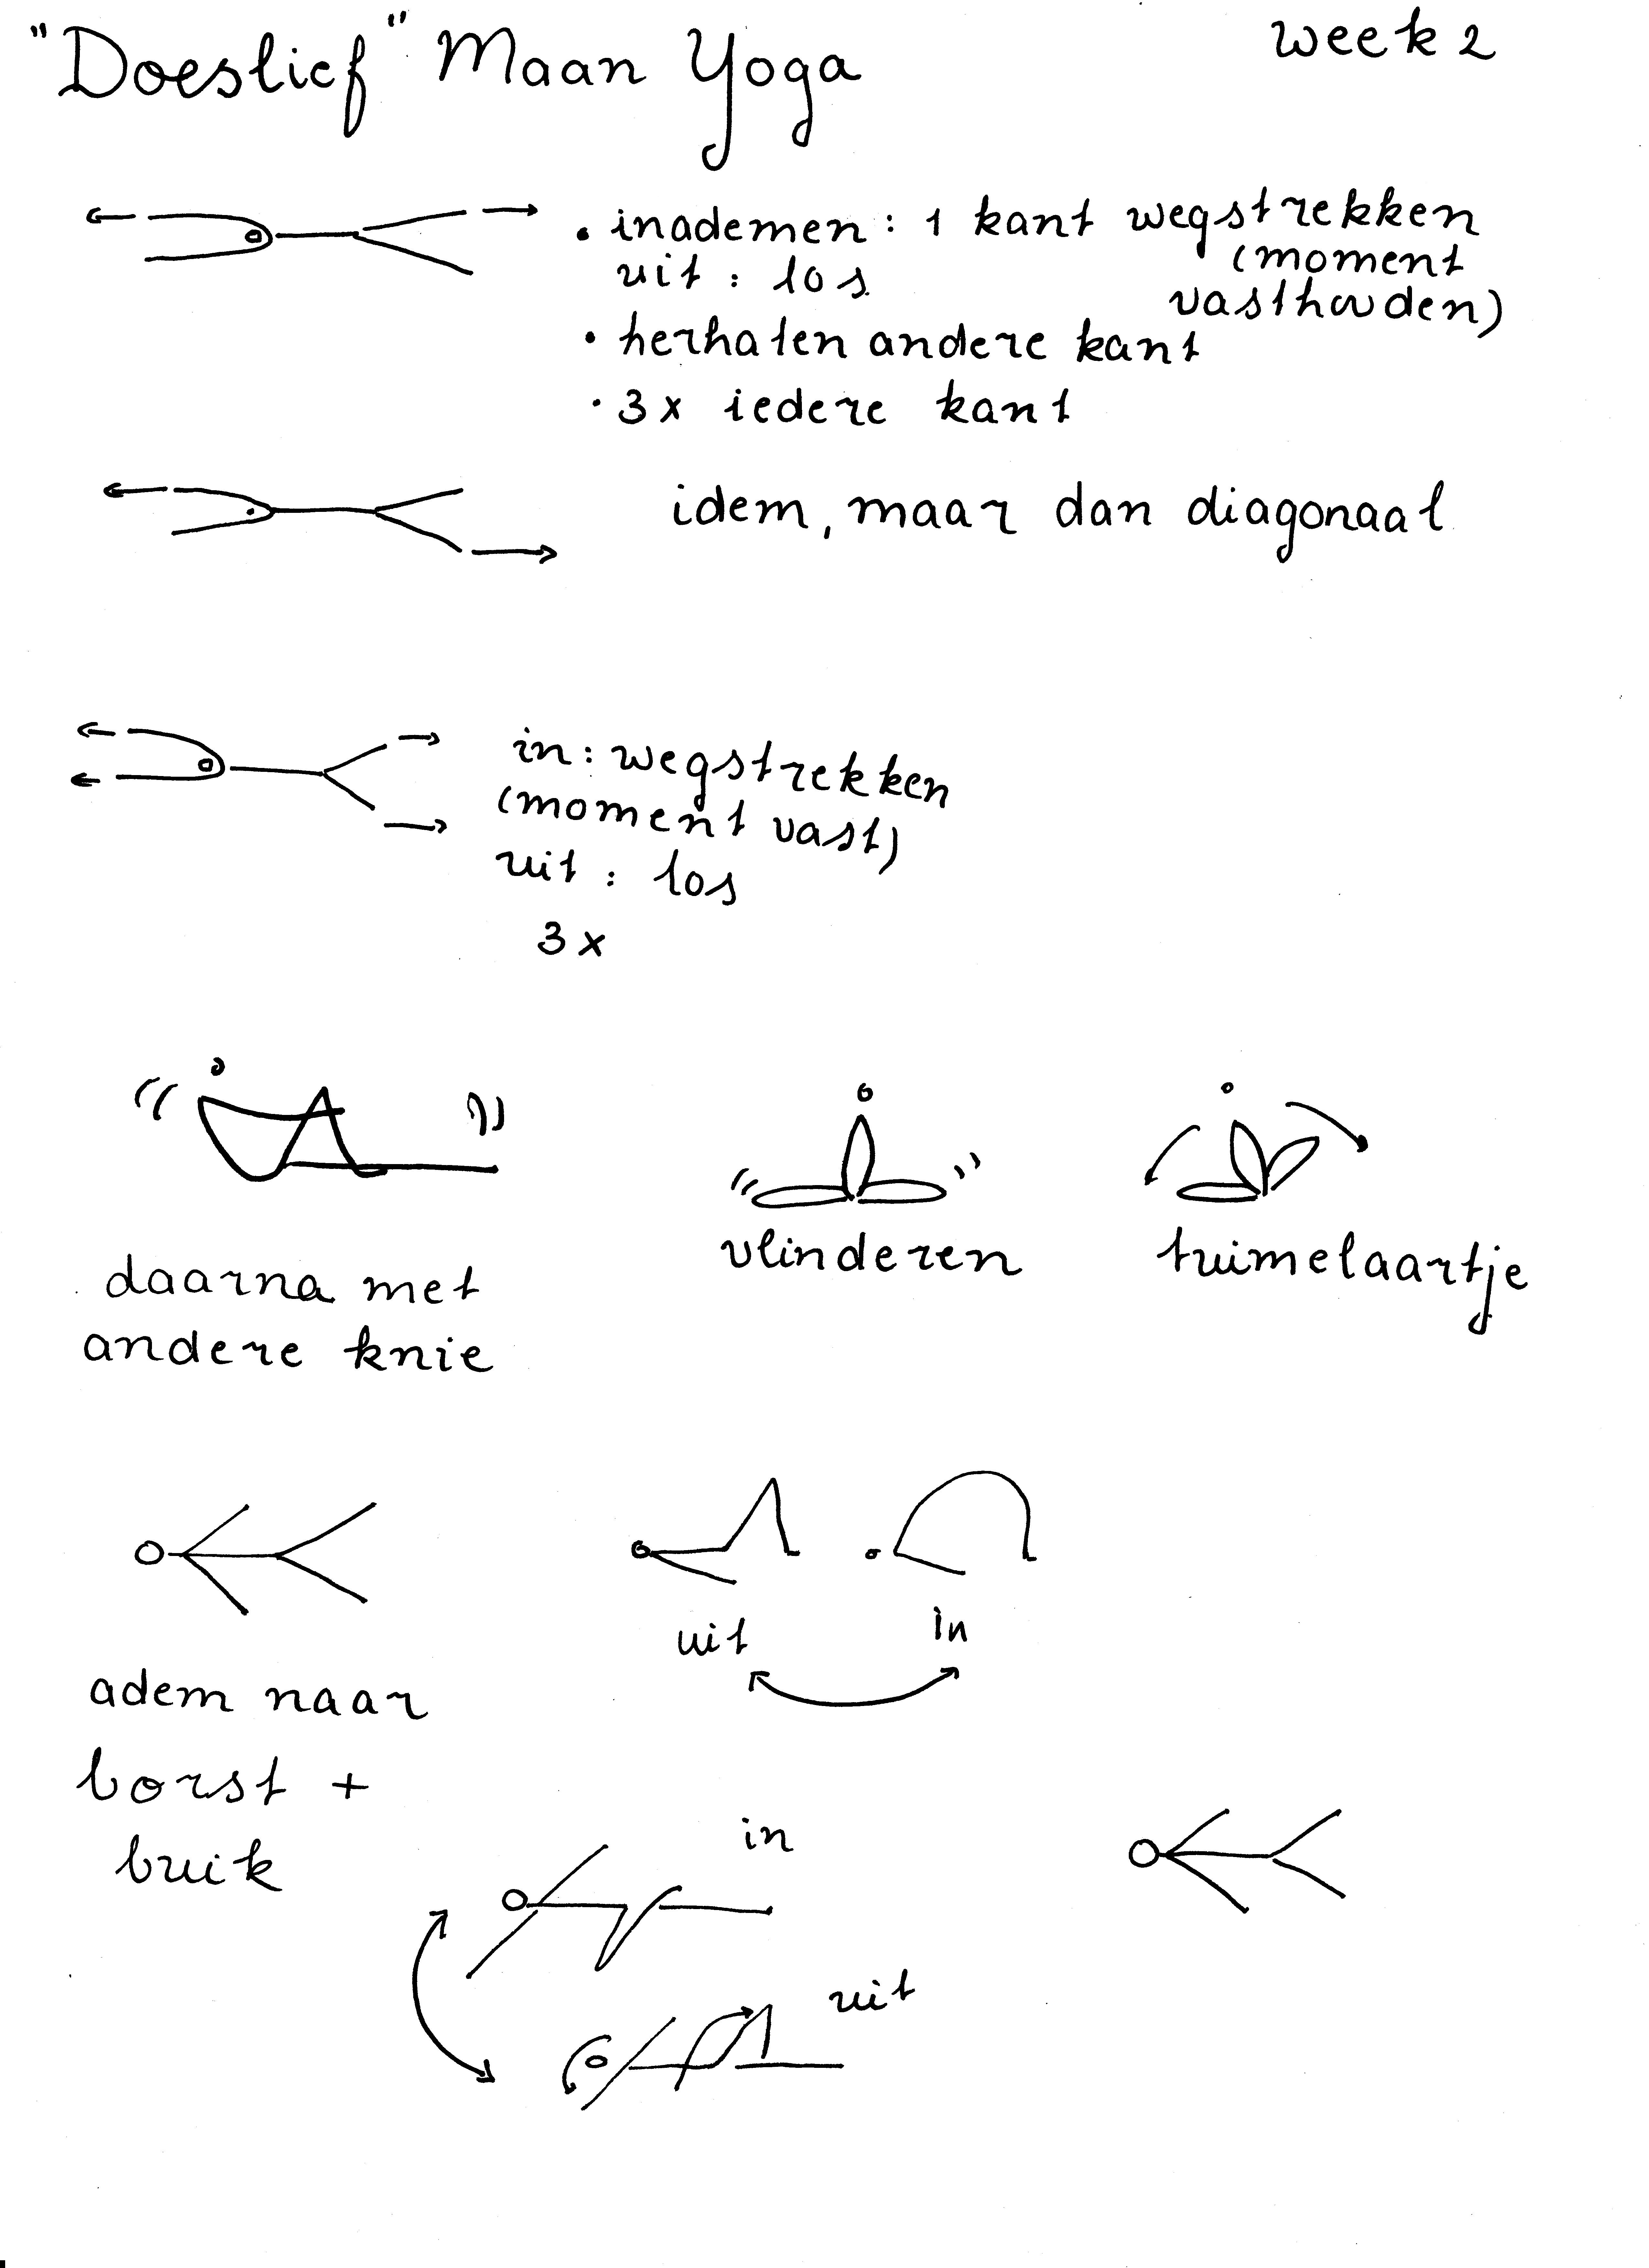 "Doeslief" Maan Yoga
week 2
• inademen: 1 kant wegstrekken
(moment
vasthouden)
uit: los
• herhalen andere kant
• 3x iedere kant
idem, maar dan diagonaal
in: wegstrekken
(moment vast)
uit: los
3x
daarna met
andere knie
vlinderen
tuimelaartje
adem naar
borst +
buik
uit
in
in
uit